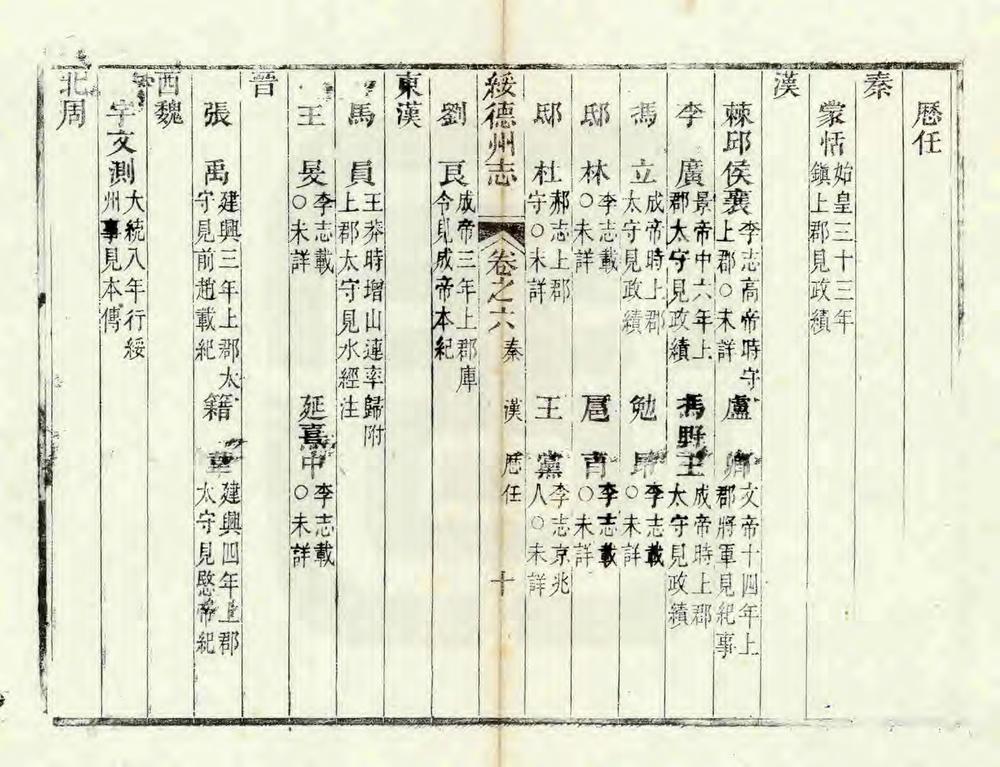 歷任
秦
蒙恬 始皇三十三年鎮上郡見政績
漢
棘邱侯襄 李志高帝時守上郡○未詳 盧卿 文帝十四年上郡將軍見紀事
李廣 景帝中六年上郡太守見政績 馮野王 成帝時上郡太守見政績
馮立 成帝時上郡太守見政績 勉昂 李志載○未詳
邸林 李志載○未詳 扈育 李志載○未詳
邸杜 郝志上郡守○未詳 王黨 李志京兆人○未詳
綏德州志 卷之六 秦 漢 歷任 十
劉良 成帝三年上郡庫令見成帝本紀
東漢
馬員 王莽時增山連率歸附上郡太守見水經注
王旻 李志載○未詳 延熹中 李志載○未詳
晉
張禹 建興三年上郡太守見前趙載紀 籍韋 建興四年上郡太守見愍帝紀
西魏
宇文測 大統八年行綏州事見本傳
北周